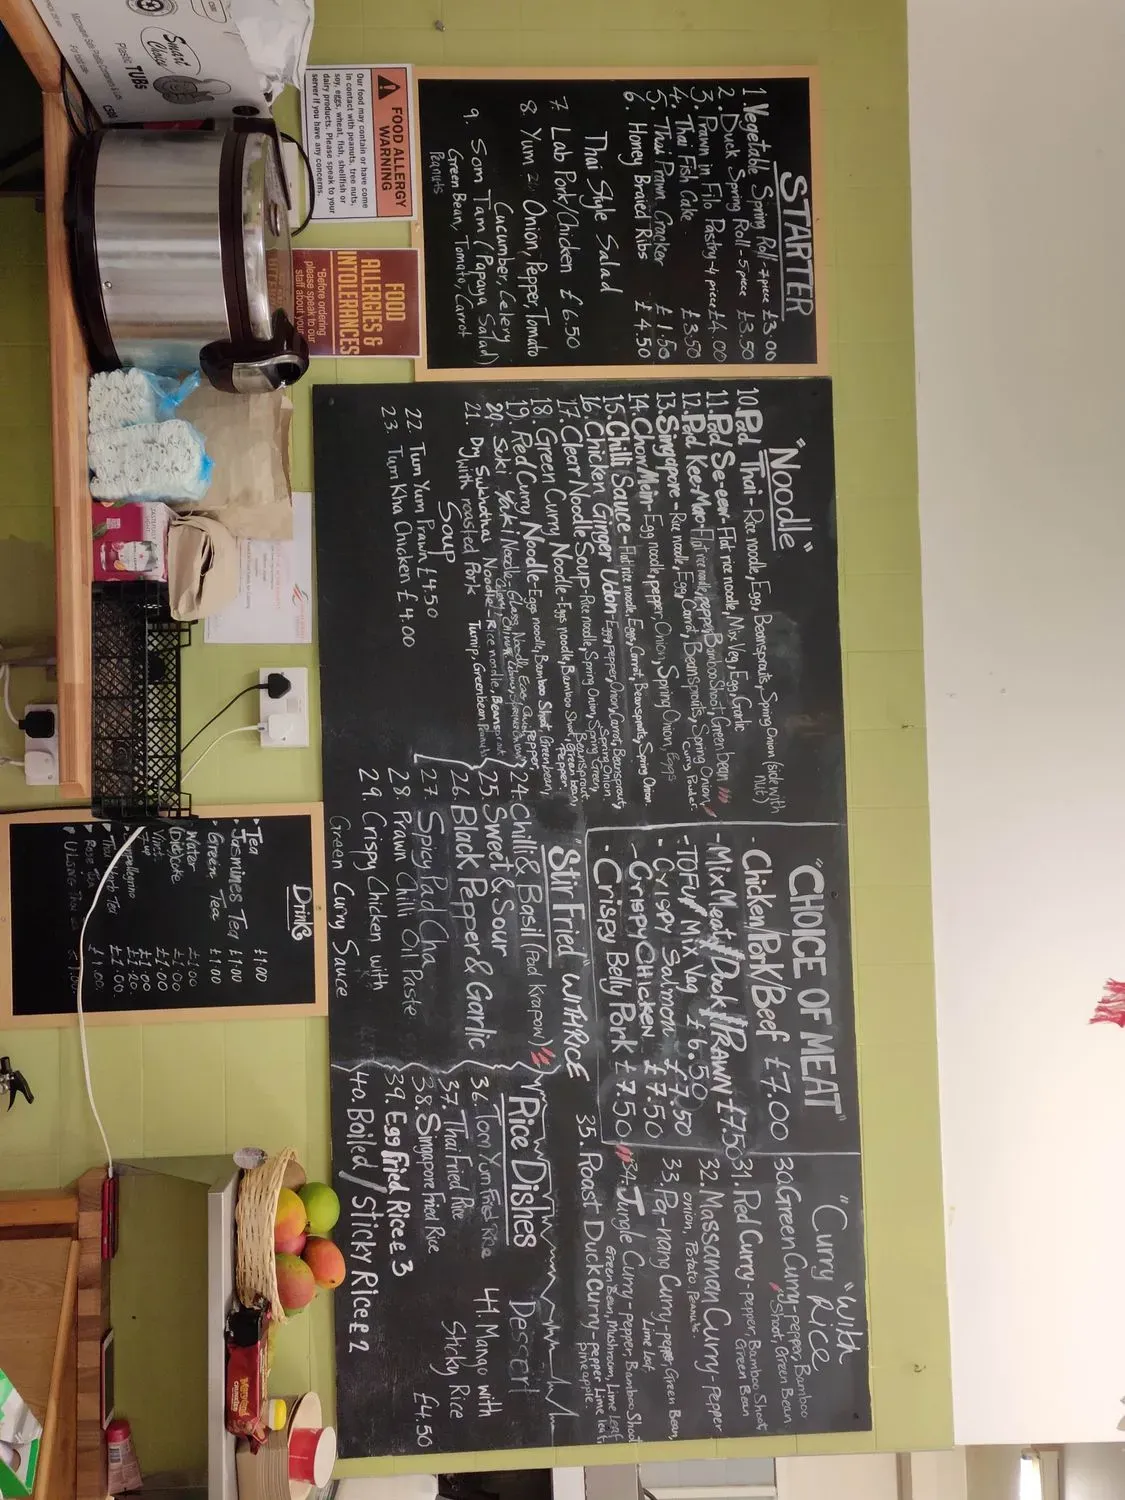 STARTER
1. Vegetable Spring Roll 7 piece £3.00
2. Duck Spring Roll - 5 piece £3.50
3. Prawn in Filo Pastry - 4 piece £4.00
4. Thai Fish Cake £3.50
5. Thai Prawn Cracker £1.50
6. Honey Braied Ribs £4.50
Thai Style Salad
7. Lab Pork/Chicken £6.50
8. Yum Onion, Pepper, Tomato
Cucumber, Celery
9. Som Tam (Papaya Salad)
Green Bean, Tomato, Carrot
Peanuts
"Noodle"
10. Pad Thai - Rice noodle, Egg, Beansprouts, Spring Onion
nut)
11. Pad Se-eew - Flat rice noodle, Mix Veg, Egg, Garlic
12. Pad Kee-Mao - Flat rice noodle, pepper, Bamboo Shoot, Green bean
13. Singapore - Rice noodle, Egg, Carrot, Beansprouts, Spring Onion
Curry Powder
14. Chow Mein - Egg noodle, pepper, Onion, Spring Onion, Eggs
15. Chilli Sauce - Flat rice noodle, Eggs, Carrot, Beansprouts, Spring Onion
16. Chicken Ginger Udon - Egg, pepper, Onion, Carrot, Beansprouts,
Spring Onion
17. Clear Noodle Soup - Rice noodle, Spring Onion, Spring Green,
Beansprout
18. Green Curry Noodle - Eggs noodle, Bamboo Shoot, Green bean,
Pepper
19. Red Curry Noodle - Eggs noodle, Bamboo Shoot, Greenbean,
Pepper,
20. Suki Yaki Noodle - Glass Noodle,
21. Dry Sukhothai Noodle - Rice noodle, Beansprout
with roasted Pork Turnip, Greenbean, Peanuts
Soup
22. Tum Yum Prawn £4.50
23. Tum Kha Chicken £4.00
"CHOICE OF MEAT"
- Chicken/Pork/Beef £7.00
- Mix Meat/Duck/PRAWN £7.50
- TOFU/Mix Veg £6.50
- Crispy Salmon £7.50
- Crispy CHICKEN £7.50
- Crispy Belly Pork £7.50
"Stir Fried WITH RICE
24. Chilli & Basil (Pad Krapow)
25. Sweet & Sour
26. Black Pepper & Garlic
27. Spicy Pad Cha
28. Prawn Chilli Oil Paste
29. Crispy Chicken with
Green Curry Sauce
"Curry "With
Rice
30. Green Curry - pepper, Bamboo
Shoot, Green Bean
31. Red Curry - pepper, Bamboo Shoot
Green Bean
32. Massaman Curry - Pepper
Onion, Potato, Peanuts.
33. Pa-nang Curry - pepper, Green Bean,
Lime leaf
34. Jungle Curry - pepper, Bamboo Shoot
Green Bean, Mushroom, Lime Leaf
35. Roast Duck Curry - pepper, Lime leaf,
pineapple.
"Rice Dishes
36. Tom Yum Fried Rice
37. Thai Fried Rice
38. Singapore Fried Rice
39. Egg Fried Rice £3
40. Boiled/Sticky Rice £2
Dessert
41. Mango with
Sticky Rice
£4.50
Drinks
Tea £1.00
Jasmines Tea £1.00
Green Tea £1.00
Water £1.00
(Die)Coke £1.00
Vimto £1.00
FOOD ALLERGY
WARNING
Our food may contain or have come
in contact with peanuts, tree nuts,
soy, eggs, wheat, fish, shellfish or
dairy products. Please speak to your
server if you have any concerns.
FOOD
ALLERGIES &
INTOLERANCES
*Before ordering
please speak to our
staff about your
Smart
Choice
Plastic TUBs
Maryland